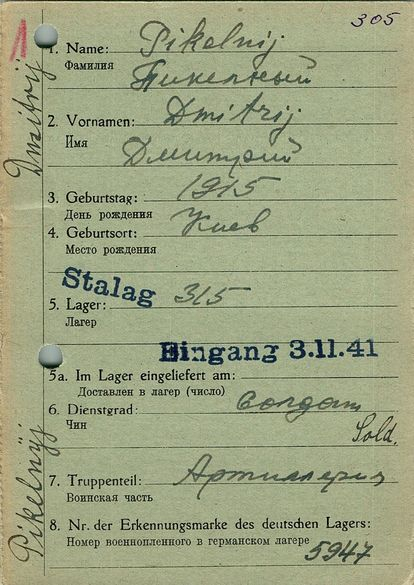 305
1. Name: Pikelnij
Фамилия
Пикельный
2. Vornamen: Dmitrij
Имя
Дмитрий
3. Geburtstag: 1915
День рождения
4. Geburtsort: Киев
Место рождения
Stalag 315
5. Lager:
Лагер
Eingang 3.11.41
5a. Im Lager eingeliefert am:
Доставлен в лагер (число)
6. Dienstgrad: солдат
Чин
Sold.
7. Truppenteil: Артиллерия
Воинская часть
8. Nr. der Erkennungsmarke des deutschen Lagers:
Номер военнопленного в германском лагере
5947
Pikelnyj Dmitrij